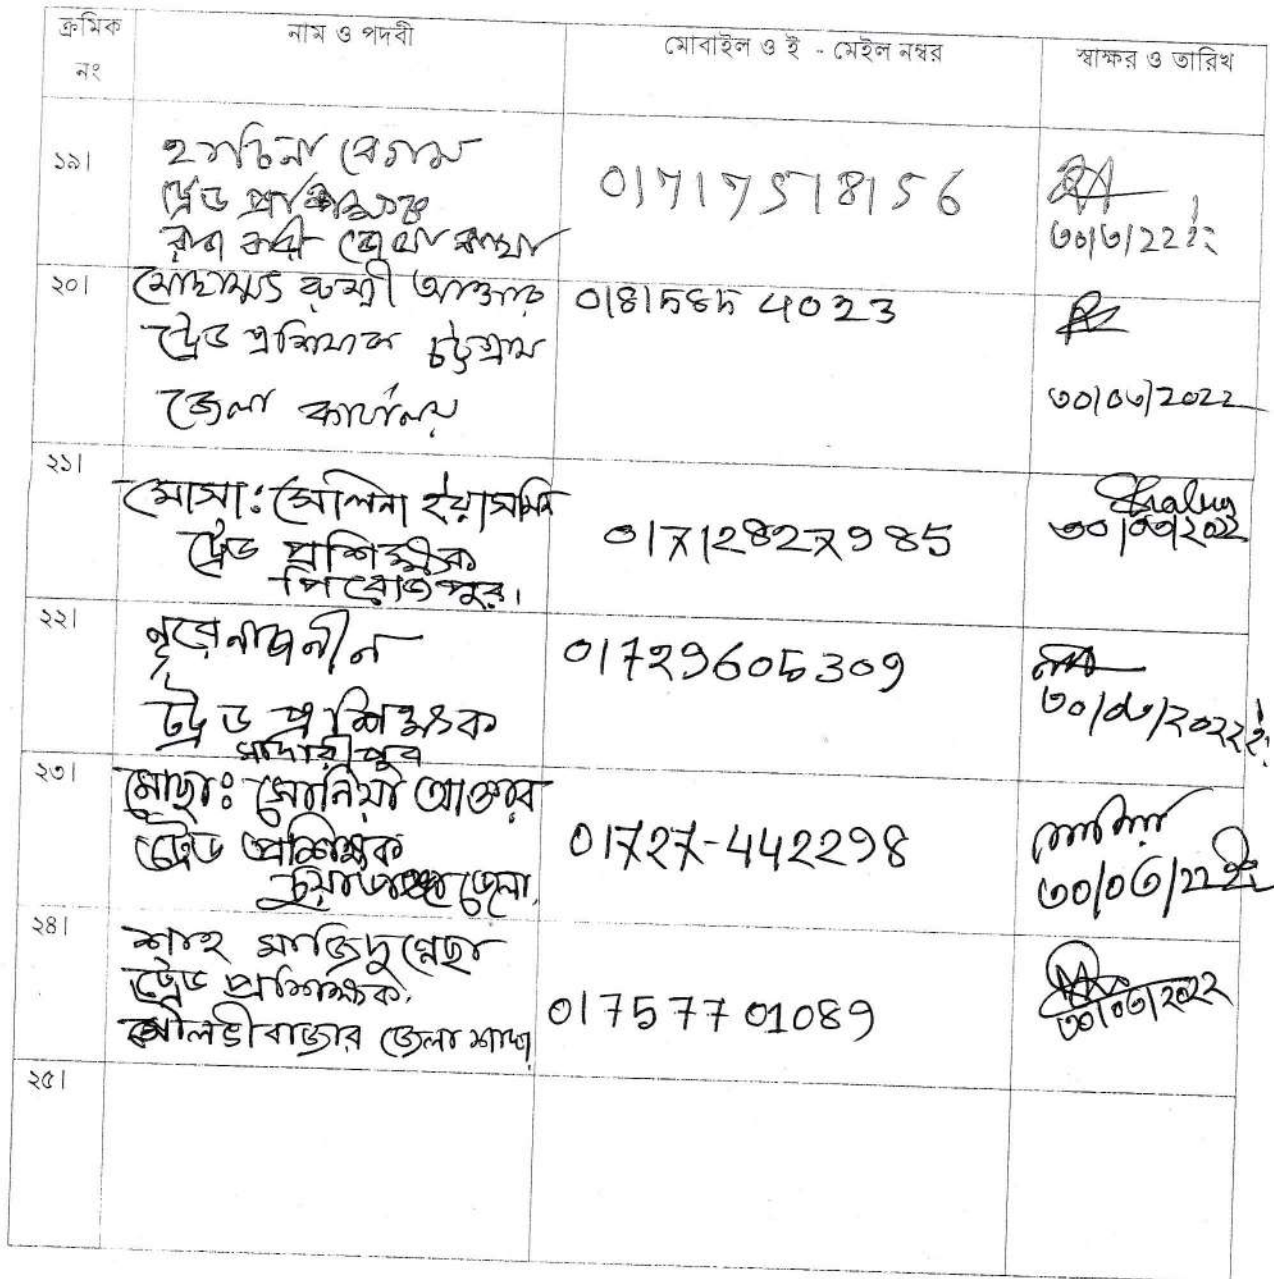 ক্রমিক নং
নাম ও পদবী
মোবাইল ও ই - মেইল নম্বর
স্বাক্ষর ও তারিখ
১৯।
হাচিনা বেগম
ট্রেড প্রশিক্ষক
01717518156
৩০/৩/22 ইং
২০।
মোছাম্মৎ রুমী আক্তার
ট্রেড প্রশিক্ষক চট্টগ্রাম
জেলা কার্যালয়
01815854023
৩০/০৩/2022
২১।
মোসা: সেলিনা ইয়াসমিন
ট্রেড প্রশিক্ষক
পিরোজপুর।
01712827985
৩০/০৩/2022
২২।
নূরে নাজনীন
ট্রেড প্রশিক্ষক
মাদারীপুর
01729605309
৩০/০৩/২০২২ইং
২৩।
মোছা: সোনিয়া আক্তার
ট্রেড প্রশিক্ষক
চুয়াডাঙ্গা জেলা
01727-442298
সোনিয়া
৩০/০৩/22ইং
২৪।
শাহ মাজিদুন্নেছা
ট্রেড প্রশিক্ষক,
মৌলভীবাজার জেলা শাখা
01757701089
৩০/০৩/২০২২
২৫।